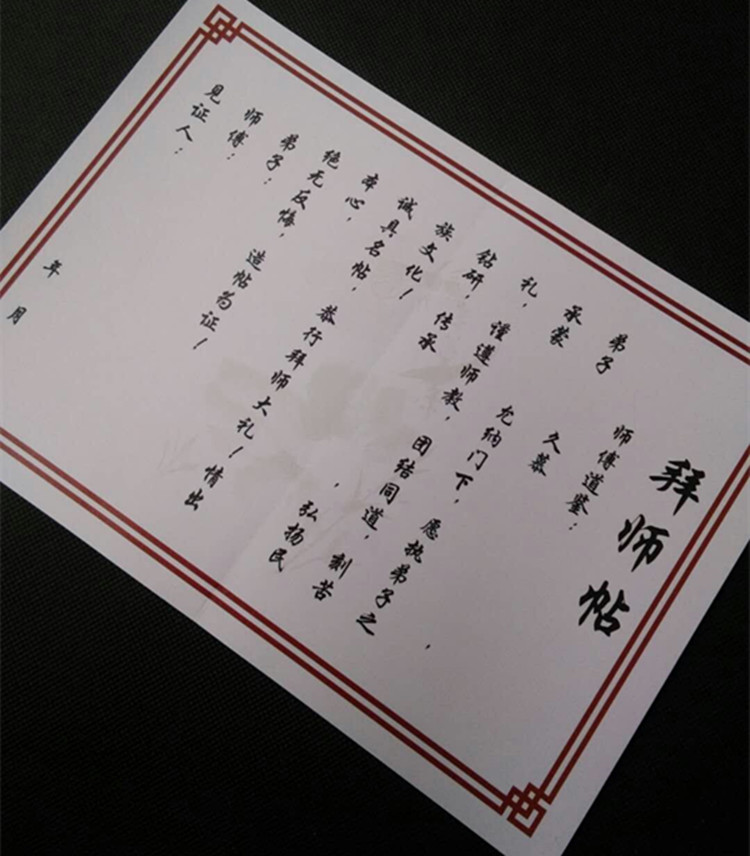 拜师帖
师傅道鉴：
弟子 久慕 ，
承蒙 允纳门下，愿执弟子之
礼，谨遵师教，团结同道，刻苦
钻研，传承 ，弘扬民
族文化！
诚具名帖，恭行拜师大礼！情出
本心，
绝无反悔，造帖为证！
弟子：
师傅：
见证人：
年 月